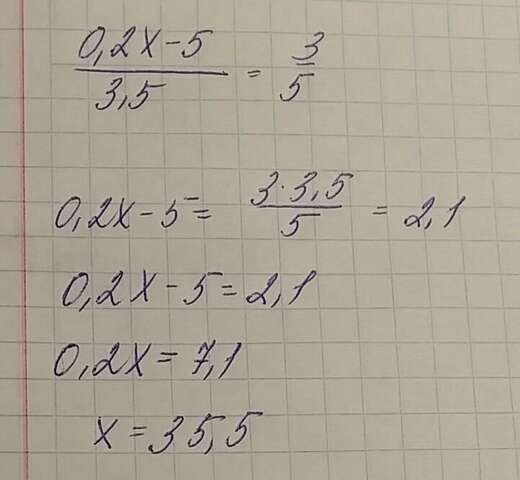 (0,2x-5)/3,5 = 3/5
0,2x-5 = (3·3,5)/5 = 2,1
0,2x-5=2,1
0,2x=7,1
x=35,5